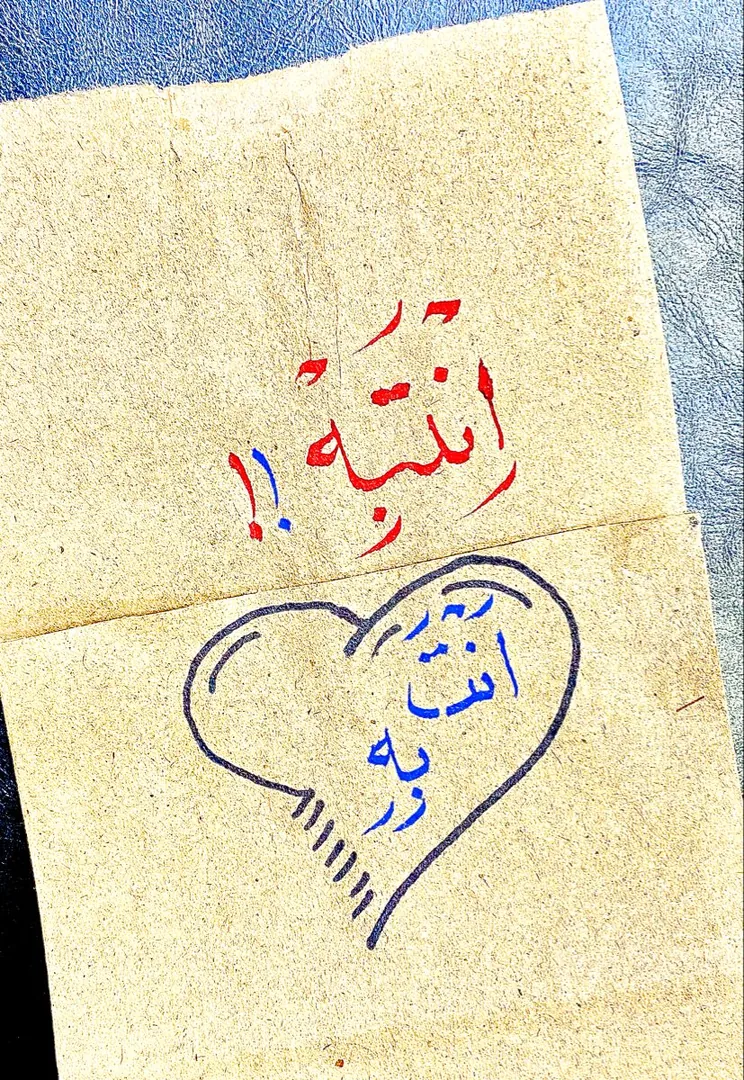 اِنْتَبِهْ !!
اَنْتَ
بِهِ